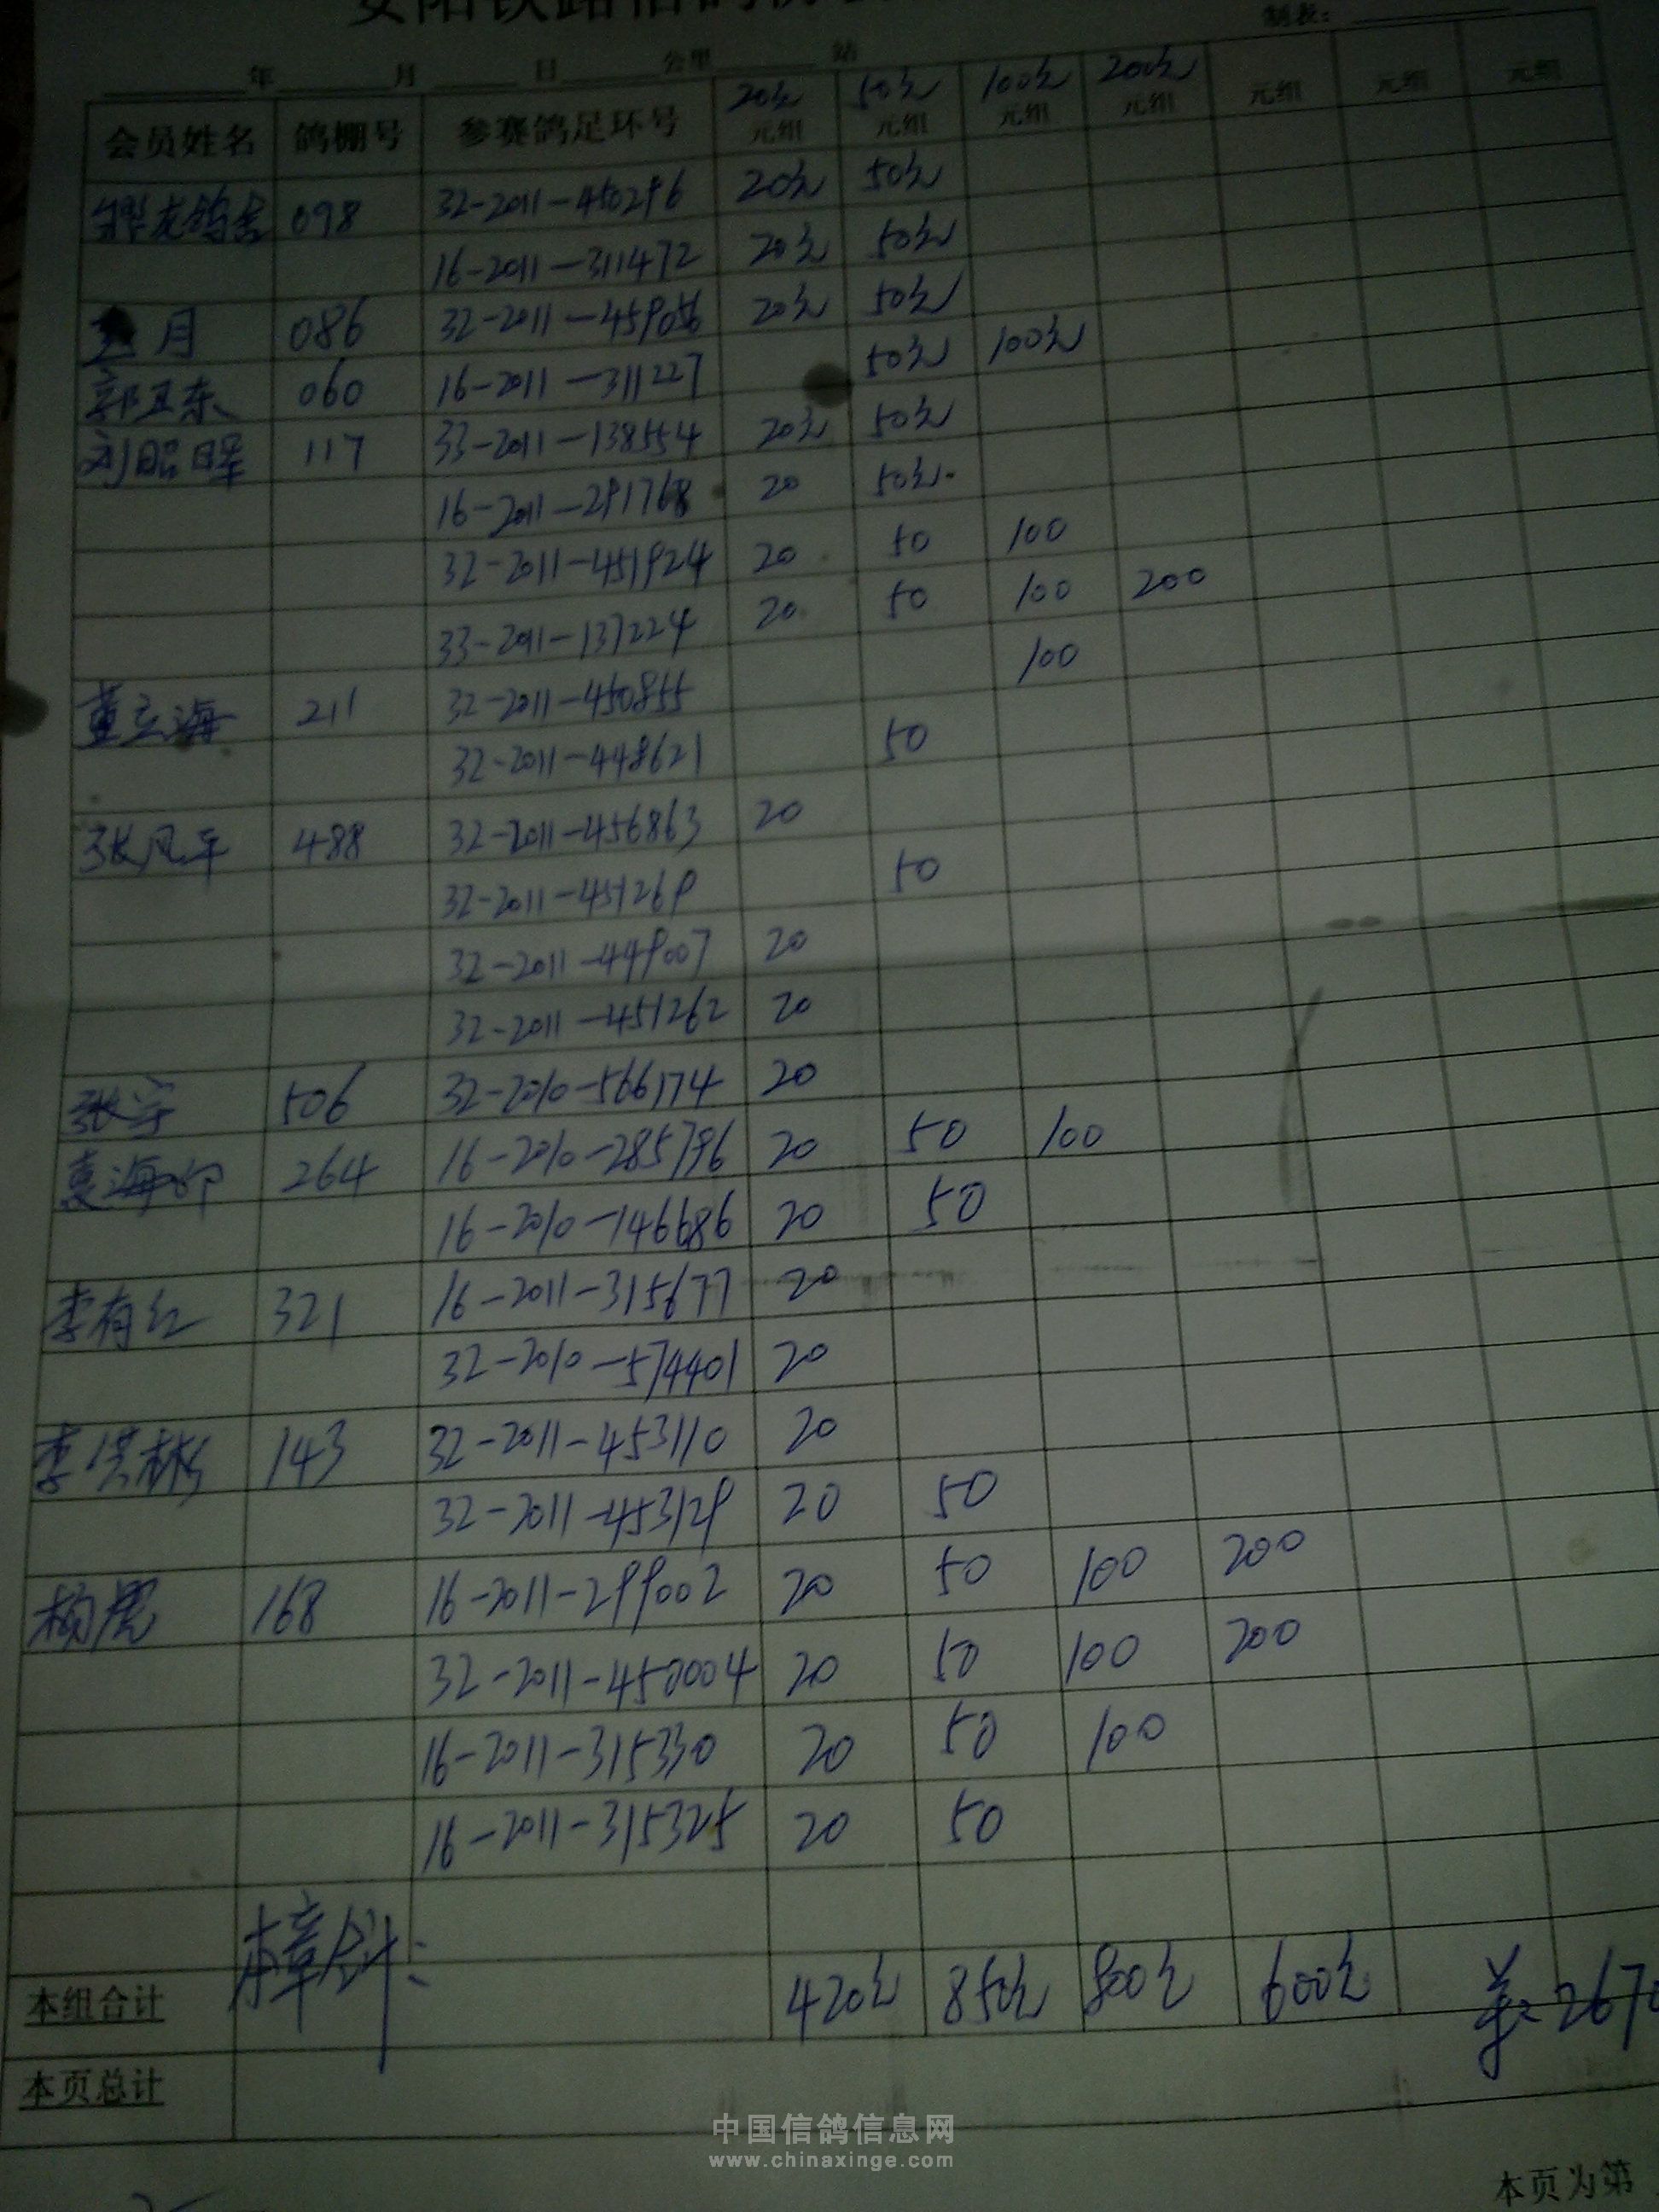 制表:
年 月 日 公里 站
20元 50元 100元 200元
会员姓名 鸽棚号 参赛鸽足环号 元组 元组 元组 元组 元组 元组 元组
龙鸽舍 098 32-2011-450296 20元 50元
16-2011-311472 20元 50元
月 086 32-2011-459056 20元 50元
郭卫东 060 16-2011-311227 50元 100元
刘昭晖 117 33-2011-138554 20元 50元
16-2011-291768 20 50元
32-2011-451924 20 50 100
33-2011-137224 20 50 100 200
董立海 211 32-2011-450855 100
32-2011-448621 50
张风平 488 32-2011-456863 20
32-2011-451269 50
32-2011-449007 20
32-2011-451262 20
张宇 506 32-2010-566174 20
袁海印 264 16-2010-285796 20 50 100
16-2010-146686 20 50
李有红 321 16-2011-315677 20
32-2010-574401 20
李洪彬 143 32-2011-453110 20
32-2011-453129 20 50
杨虎 168 16-2011-299002 20 50 100 200
32-2011-450004 20 50 100 200
16-2011-315330 20 50 100
16-2011-315325 20 50
本章合计:
本组合计 420元 850元 800元 600元 共:2670
本页总计
中国信鸽信息网
www.chinaxinge.com
本页为第